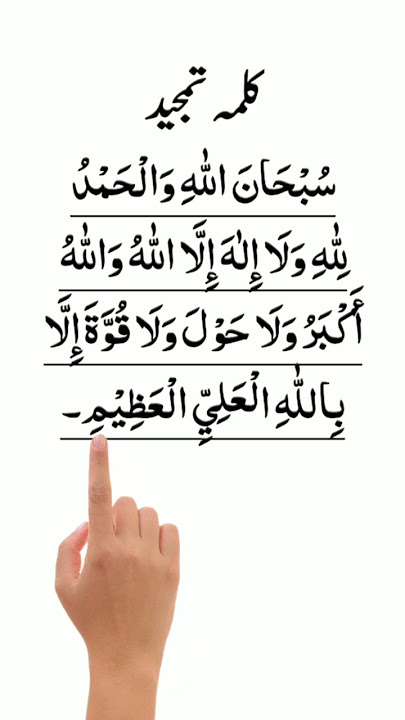 کلمہ تمجید
سُبْحَانَ اللهِ وَالْحَمْدُ
لِلّٰهِ وَلَا إِلٰهَ إِلَّا اللهُ وَاللهُ
أَكْبَرُ وَلَا حَوْلَ وَلَا قُوَّةَ إِلَّا
بِاللهِ الْعَلِيِّ الْعَظِيْمِ۔